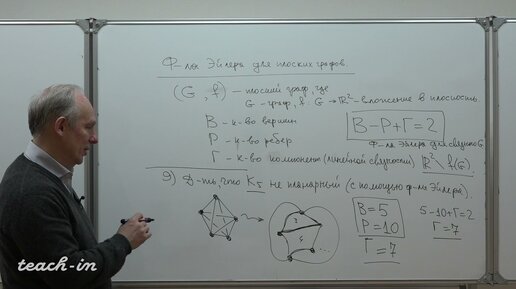 Ф-лы Эйлера для плоских графов.
(G, f) – плоский граф, где
G - граф, f: G → ℝ² - вложение в плоскость.
В – к-во вершин
Р – к-во ребер
Г – к-во компонент (линейной связности) ℝ² \ f(G).
В-Р+Г=2
Ф-ла Эйлера для связного G
9) Д-ть, что K₅ не планарный (с помощью ф-лы Эйлера).
В=5
Р=10
Г=7
5-10+Г=2
Г=7
teach-in